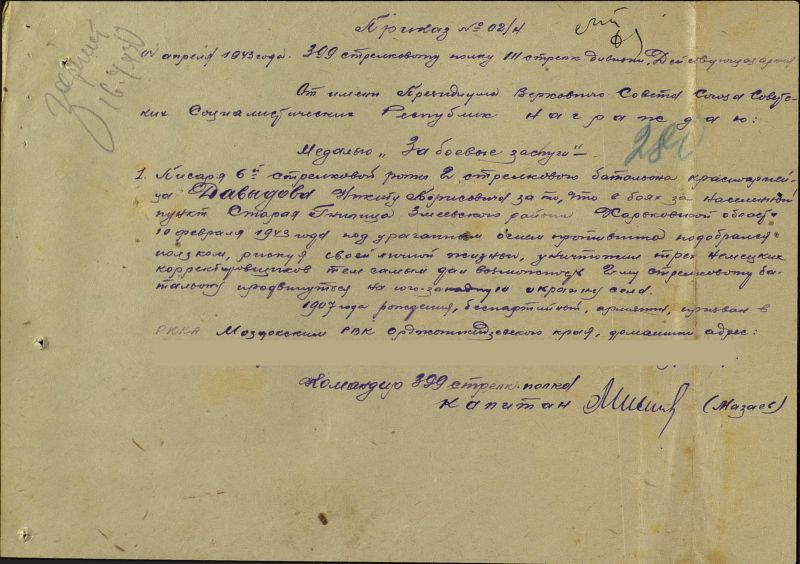 Приказ № 02/н
апреля 1943 года. 399 стрелковому полку 111 стрелк. дивизии, Действующая армия
От имени Президиума Верховного Совета Союза Советс-
ких Социалистических Республик награждаю:
Медалью „За боевые заслуги"
1. Писаря 6й стрелковой роты 2 стрелкового батальона красноармей-
ца Давыдова Никиту Борисовича за то, что в боях за населенный
пункт Старая Гнилица Змеевского района Харьковской области
10 февраля 1943 года под ураганным огнем противника подобрался
ползком, рискуя своей личной жизнью, уничтожил трех немецких
корректировщиков тем самым дал возможность 2му стрелковому ба-
тальону продвинуться на юго-западную окраину села.
1907 года рождения, беспартийный, армянин, призван в
РККА Моздокским РВК Орджоникидзевского края, домашний адрес:
Командир 399 стрелк. полка
капитан (Мазаев)
280